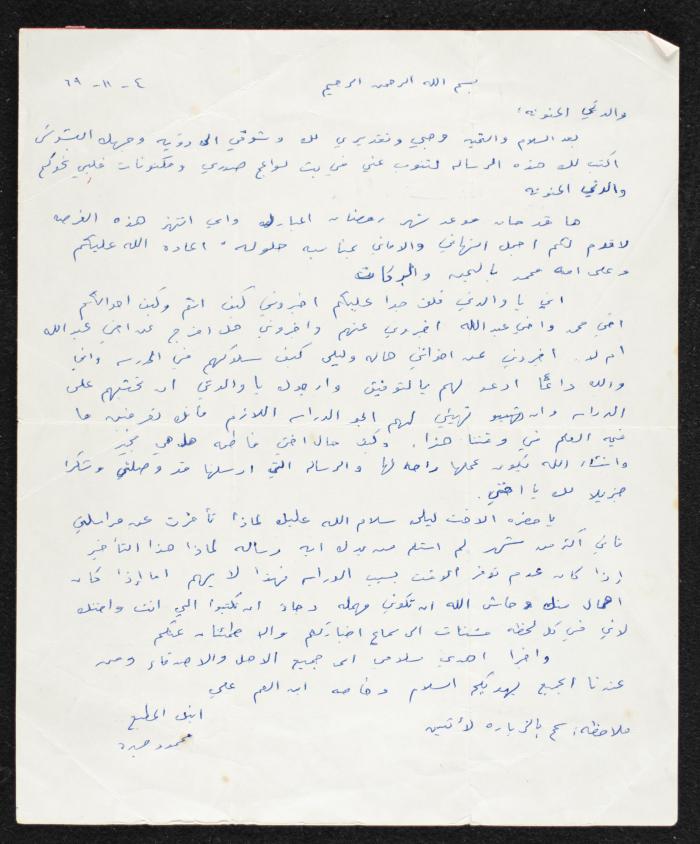 بسم الله الرحمن الرحيم
٤ - ١١ - ٦٩
والدتي الحنونة:
بعد السلام والتحيه وحبي وتقديري لك وشوقي الى رؤيه وجهك البشوش
اكتب لك هذه الرساله لتنوب عني في بث لواعج صدري ومكنونات قلبي نحوكم
والدتي الحنونه
ها قد حان موعد شهر رمضان المبارك واني انتهز هذه الفرصه
لاقدم لكم اجمل التهاني والاماني بمناسبه حلوله. اعاده الله عليكم
وعلى امه محمد باليمن والبركات
اني يا والدتي قلق جدا عليكم اخبروني كيف انتم وكيف احوالكم
اخي محمد واخي عبدالله اخبروني عنهم واخبروني هل افرج عن اخي عبدالله
ام لا. اخبروني عن اخواتي هاله وليلى كيف سلوكهم في المدرسه واني
والله دائما ادعو لهم بالتوفيق وارجوك يا والدتي ان تحثيهم على
الدراسه وان تهيئي لهم الجو الدراسه اللازم فأنك تعرفين ما
قيمه العلم في وقتنا هذا. وكيف حال اختي فاطمه هل هي بخير
وانشاء الله تكون عملها راحه لها والرساله التي ارسلتها قد وصلتني وشكرا
جزيلا لك يا اختي.
يا حضره الاخت ليلى سلام الله عليك لماذا تأخرت عن مراسلتي
فاني اكثر من شهر لم استلم من يدك ايه رساله لماذا هذا التأخير
إذا كان عدم توفر الوقت بسبب الدراسه فهذا لا يهم اما إذا كان
اهمال منك وحاش الله ان تكوني مهمله رجاء ان تكتبوا الي انت واختك
لاني في كل لحظه مشتاق الى سماع اخباركم والاطمئنان عنكم
واخيرا اهدي سلامي الى جميع الاهل والاصدقاء ومن
عندنا الجميع يهديكم السلام وخاصه ابن العم علي
ابنك المطيع
محمود
ملاحظه: سمح بالزياره لأثنين